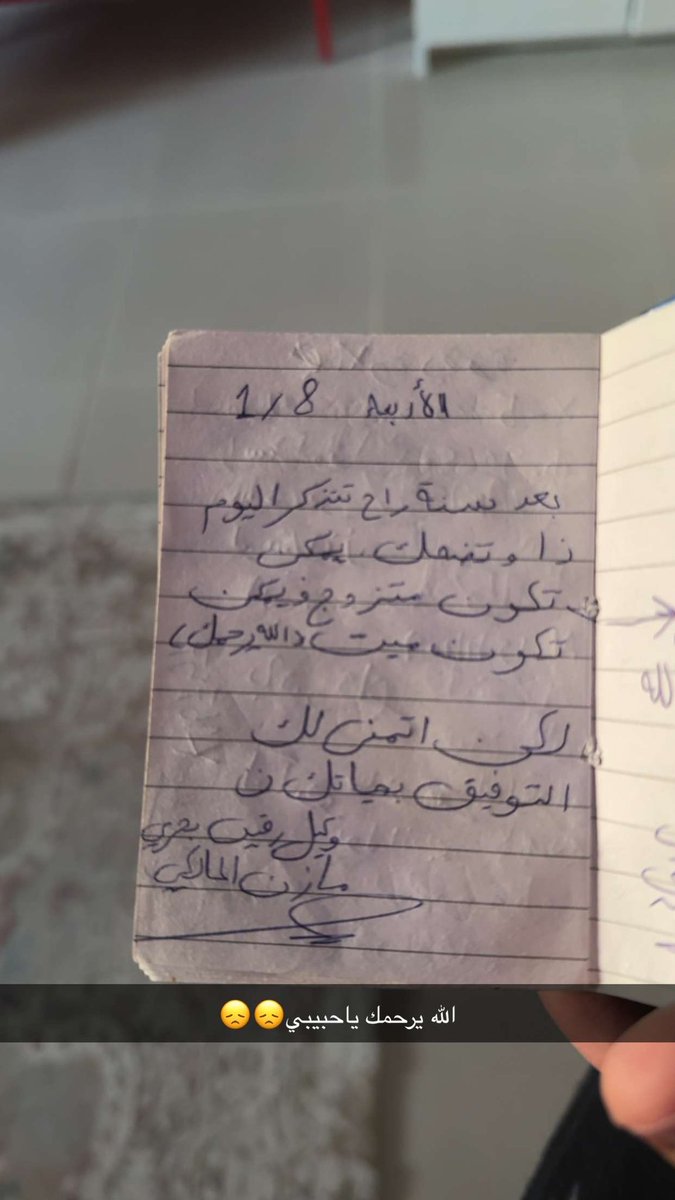 الأربعاء 1/8
بعد سنة راح تتذكر اليوم
ذا وتضحك، يمكن
تكون متزوج ويمكن
تكون ميت (الله يرحمك)
لكن اتمنى لك
التوفيق بحياتك
وكيل رقيب بحري
مازن المالكي
الله يرحمك ياحبيبي😞😞